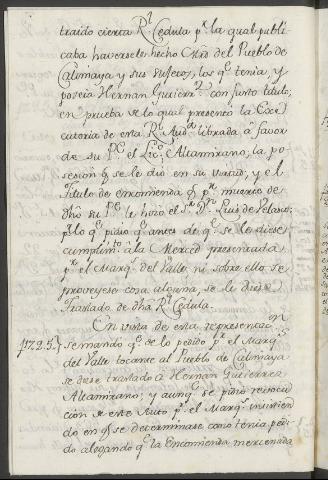 traido cierta Rˡ. Cedula pʳ. la qual publi
caba haversele hecho Mrd del Pueblo de
Calimaya y sus sugetos, los qᵉ. tenia, y
poseia Hernan Gutierrᶻ. con justo titulo;
en prueba de lo qual presentó la Exe
cutoria de esta Rˡ. Audᵃ. librada à favor
de su Pᵉ. el Licᵈᵒ. Altamirano, la po
sesion qᵉ se le dió en su virtud, y el
Titulo de encomienda qᵉ pʳ. muerte de
dho su Pᵉ. le hizo el Sʳ. Dⁿ. Luis de Velasco;
pʳ lo qᵉ. pidio qᵉ antes de qᵉ. se le diese
cumplimᵗᵒ. à la Merced presentada
pʳ. el Marqˢ. del Valle, ni sobre ello se
proveyese cosa alguna, se le diese
Traslado de dha Rˡ. Cedula.
En vista de esta representacⁿ.
1725. se mandó qᵉ. de lo pedido pʳ. el Marqˢ.
del Valle tocante al Pueblo de Calimaya
se diese traslado à Hernan Gutierrez
Altamirano; y aunqᵉ. se pidió revoca
cion de este Auto pʳ. el Marqˢ. insistien
do en qᵉ se determinase como tenia pedi
do alegando qᵉ. la Encomienda mercenada